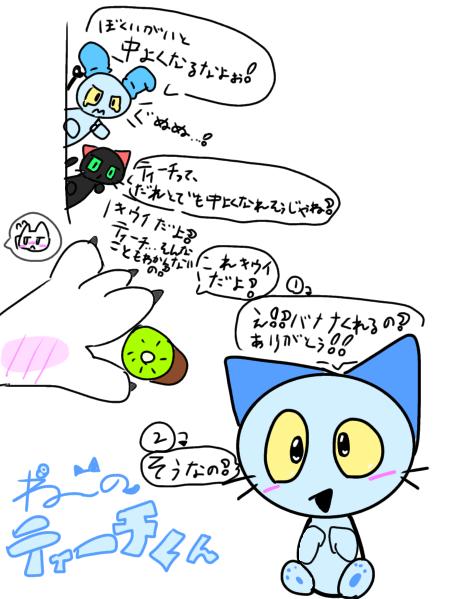 ぼくいがいと
中よくなるなよぉ!
ぐぬぬ…!
ティーチって、
だれとでも中よくなれそうじゃね?
キウイだよ?
ティーチ…そんな
こともわからない
の?
これキウイ
だよ?
①
え!?バナナくれるの?
ありがとう!!
②
そうなの?
ねこの
ティーチくん